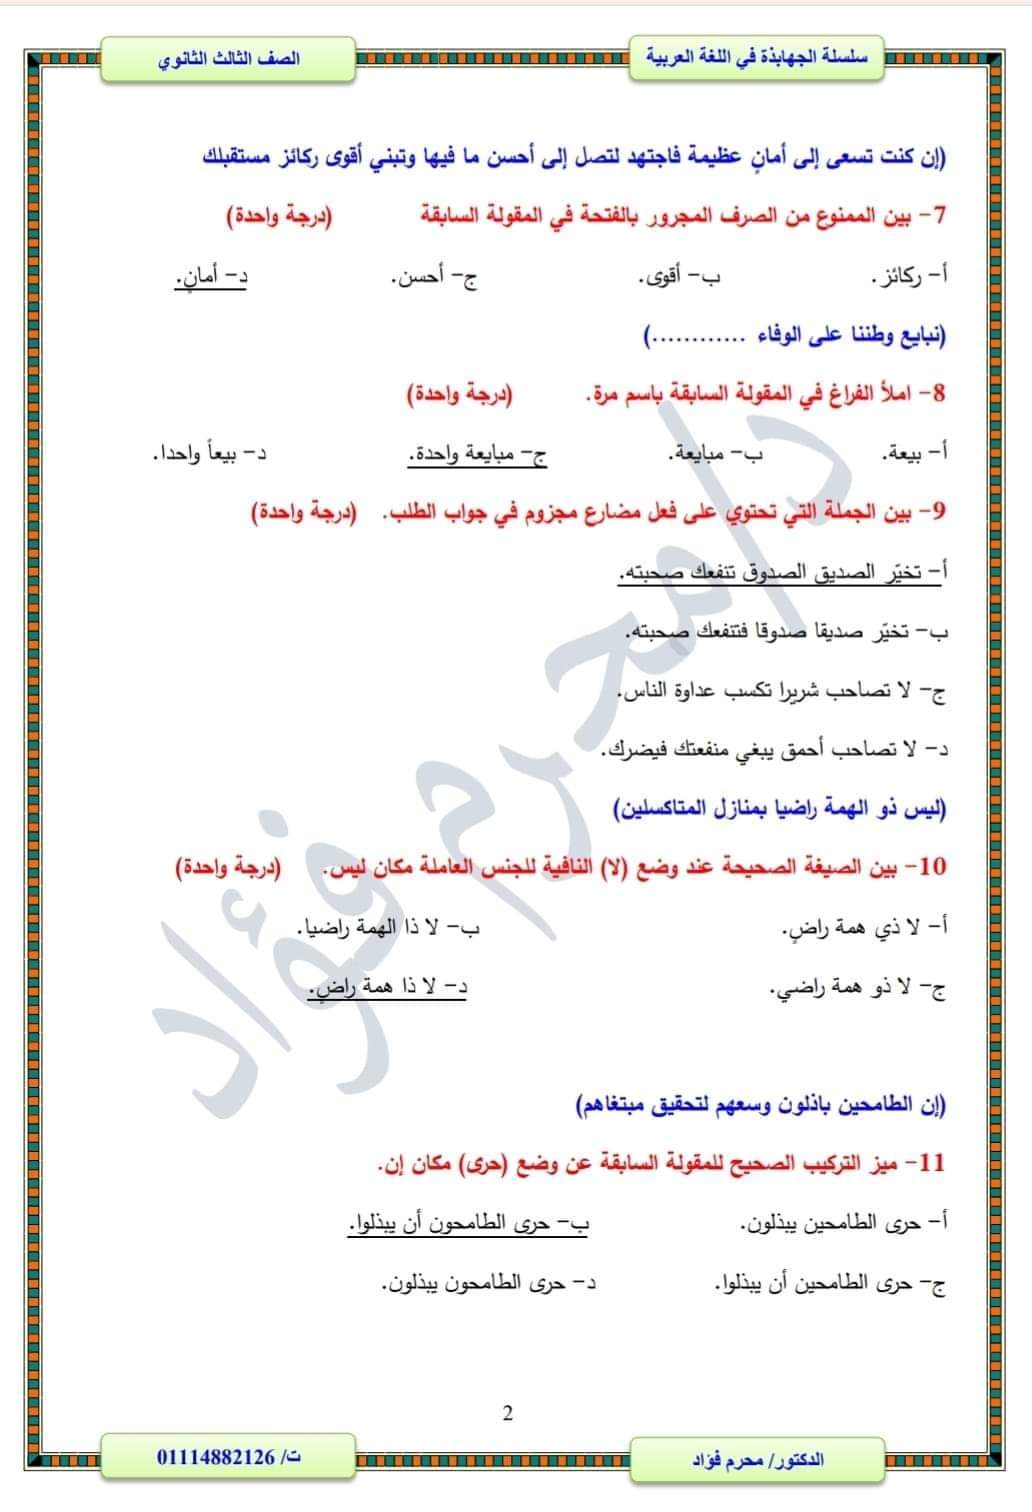 سلسلة الجهابذة في اللغة العربية
الصف الثالث الثانوي
(إن كنت تسعى إلى أمانٍ عظيمة فاجتهد لتصل إلى أحسن ما فيها وتبني أقوى ركائز مستقبلك
7- بين الممنوع من الصرف المجرور بالفتحة في المقولة السابقة (درجة واحدة)
أ- ركائز. ب- أقوى. ج- أحسن. د- أمانٍ.
(نبايع وطننا على الوفاء ............)
8- املأ الفراغ في المقولة السابقة باسم مرة. (درجة واحدة)
أ- بيعة. ب- مبايعة. ج- مبايعة واحدة. د- بيعاً واحدا.
9- بين الجملة التي تحتوي على فعل مضارع مجزوم في جواب الطلب. (درجة واحدة)
أ- تخيّر الصديق الصدوق تنفعك صحبته.
ب- تخيّر صديقا صدوقا فتنفعك صحبته.
ج- لا تصاحب شريرا تكسب عداوة الناس.
د- لا تصاحب أحمق يبغي منفعتك فيضرك.
(ليس ذو الهمة راضيا بمنازل المتاكسلين)
10- بين الصيغة الصحيحة عند وضع (لا) النافية للجنس العاملة مكان ليس. (درجة واحدة)
أ- لا ذي همة راضٍ. ب- لا ذا الهمة راضيا.
ج- لا ذو همة راضي. د- لا ذا همة راضٍ.
(إن الطامحين باذلون وسعهم لتحقيق مبتغاهم)
11- ميز التركيب الصحيح للمقولة السابقة عن وضع (حرى) مكان إن.
أ- حرى الطامحين يبذلون. ب- حرى الطامحون أن يبذلوا.
ج- حرى الطامحين أن يبذلوا. د- حرى الطامحون يبذلون.
2
الدكتور/ محرم فؤاد
ت/ 01114882126
د/محرم فؤاد